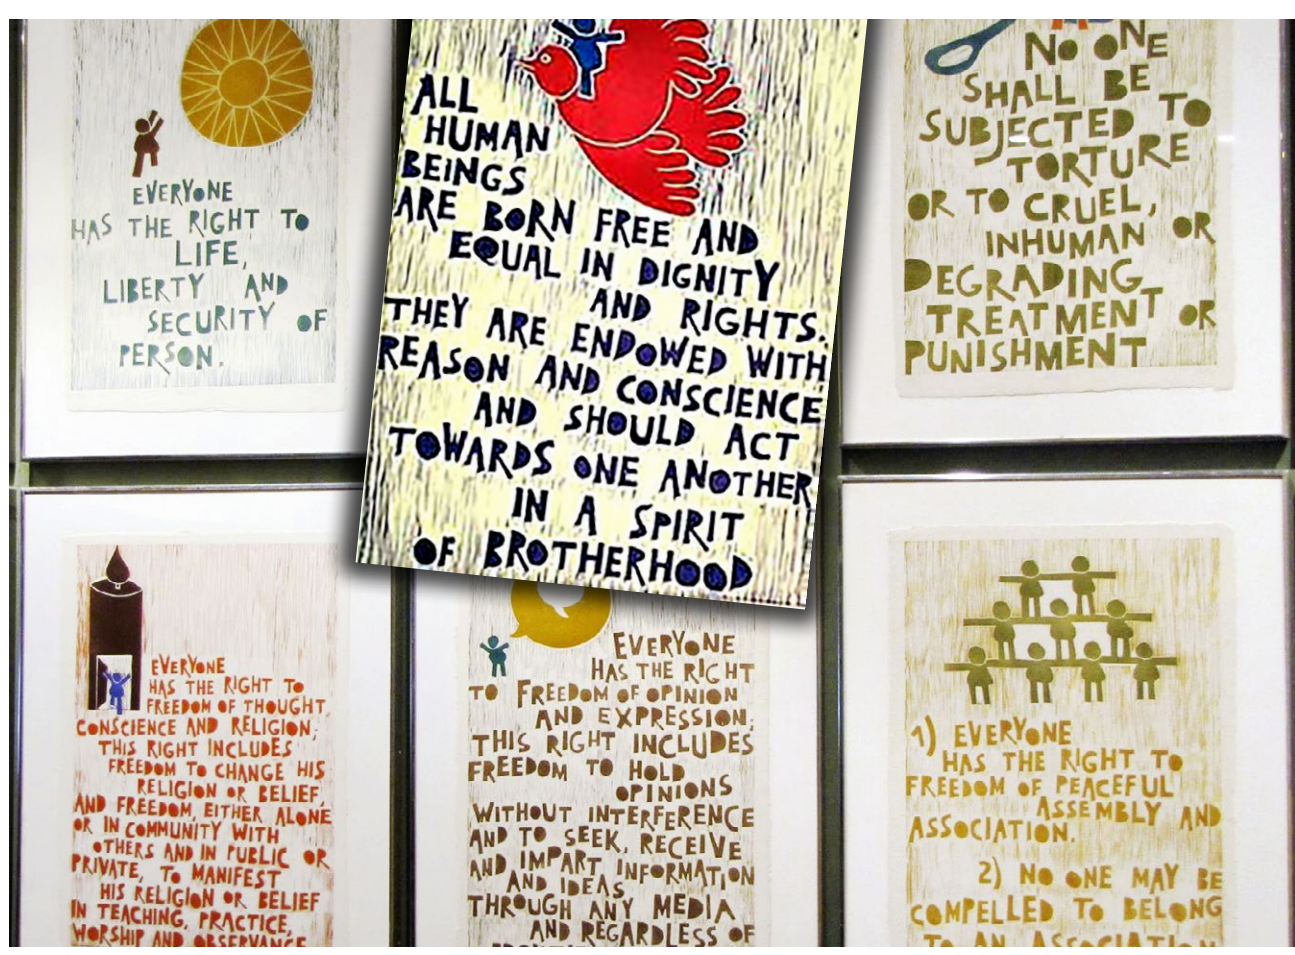 EVERYONE
HAS THE RIGHT TO
LIFE,
LIBERTY AND
SECURITY OF
PERSON.
ALL
HUMAN
BEINGS
ARE BORN FREE AND
EQUAL IN DIGNITY
AND RIGHTS.
THEY ARE ENDOWED WITH
REASON AND CONSCIENCE
AND SHOULD ACT
TOWARDS ONE ANOTHER
IN A SPIRIT
OF BROTHERHOOD
NO ONE
SHALL BE
SUBJECTED TO
TORTURE
OR TO CRUEL,
INHUMAN OR
DEGRADING
TREATMENT OR
PUNISHMENT
EVERYONE
HAS THE RIGHT TO
FREEDOM OF THOUGHT
CONSCIENCE AND RELIGION;
THIS RIGHT INCLUDES
FREEDOM TO CHANGE HIS
RELIGION OR BELIEF,
AND FREEDOM, EITHER ALONE
OR IN COMMUNITY WITH
OTHERS AND IN PUBLIC OR
PRIVATE, TO MANIFEST
HIS RELIGION OR BELIEF
IN TEACHING, PRACTICE,
WORSHIP AND OBSERVANCE
EVERYONE
HAS THE RIGHT
TO FREEDOM OF OPINION
AND EXPRESSION;
THIS RIGHT INCLUDES
FREEDOM TO HOLD
OPINIONS
WITHOUT INTERFERENCE
AND TO SEEK, RECEIVE
AND IMPART INFORMATION
AND IDEAS
THROUGH ANY MEDIA
AND REGARDLESS OF
1) EVERYONE
HAS THE RIGHT TO
FREEDOM OF PEACEFUL
ASSEMBLY AND
ASSOCIATION.
2) NO ONE MAY BE
COMPELLED TO BELONG
TO AN ASSOCIATION